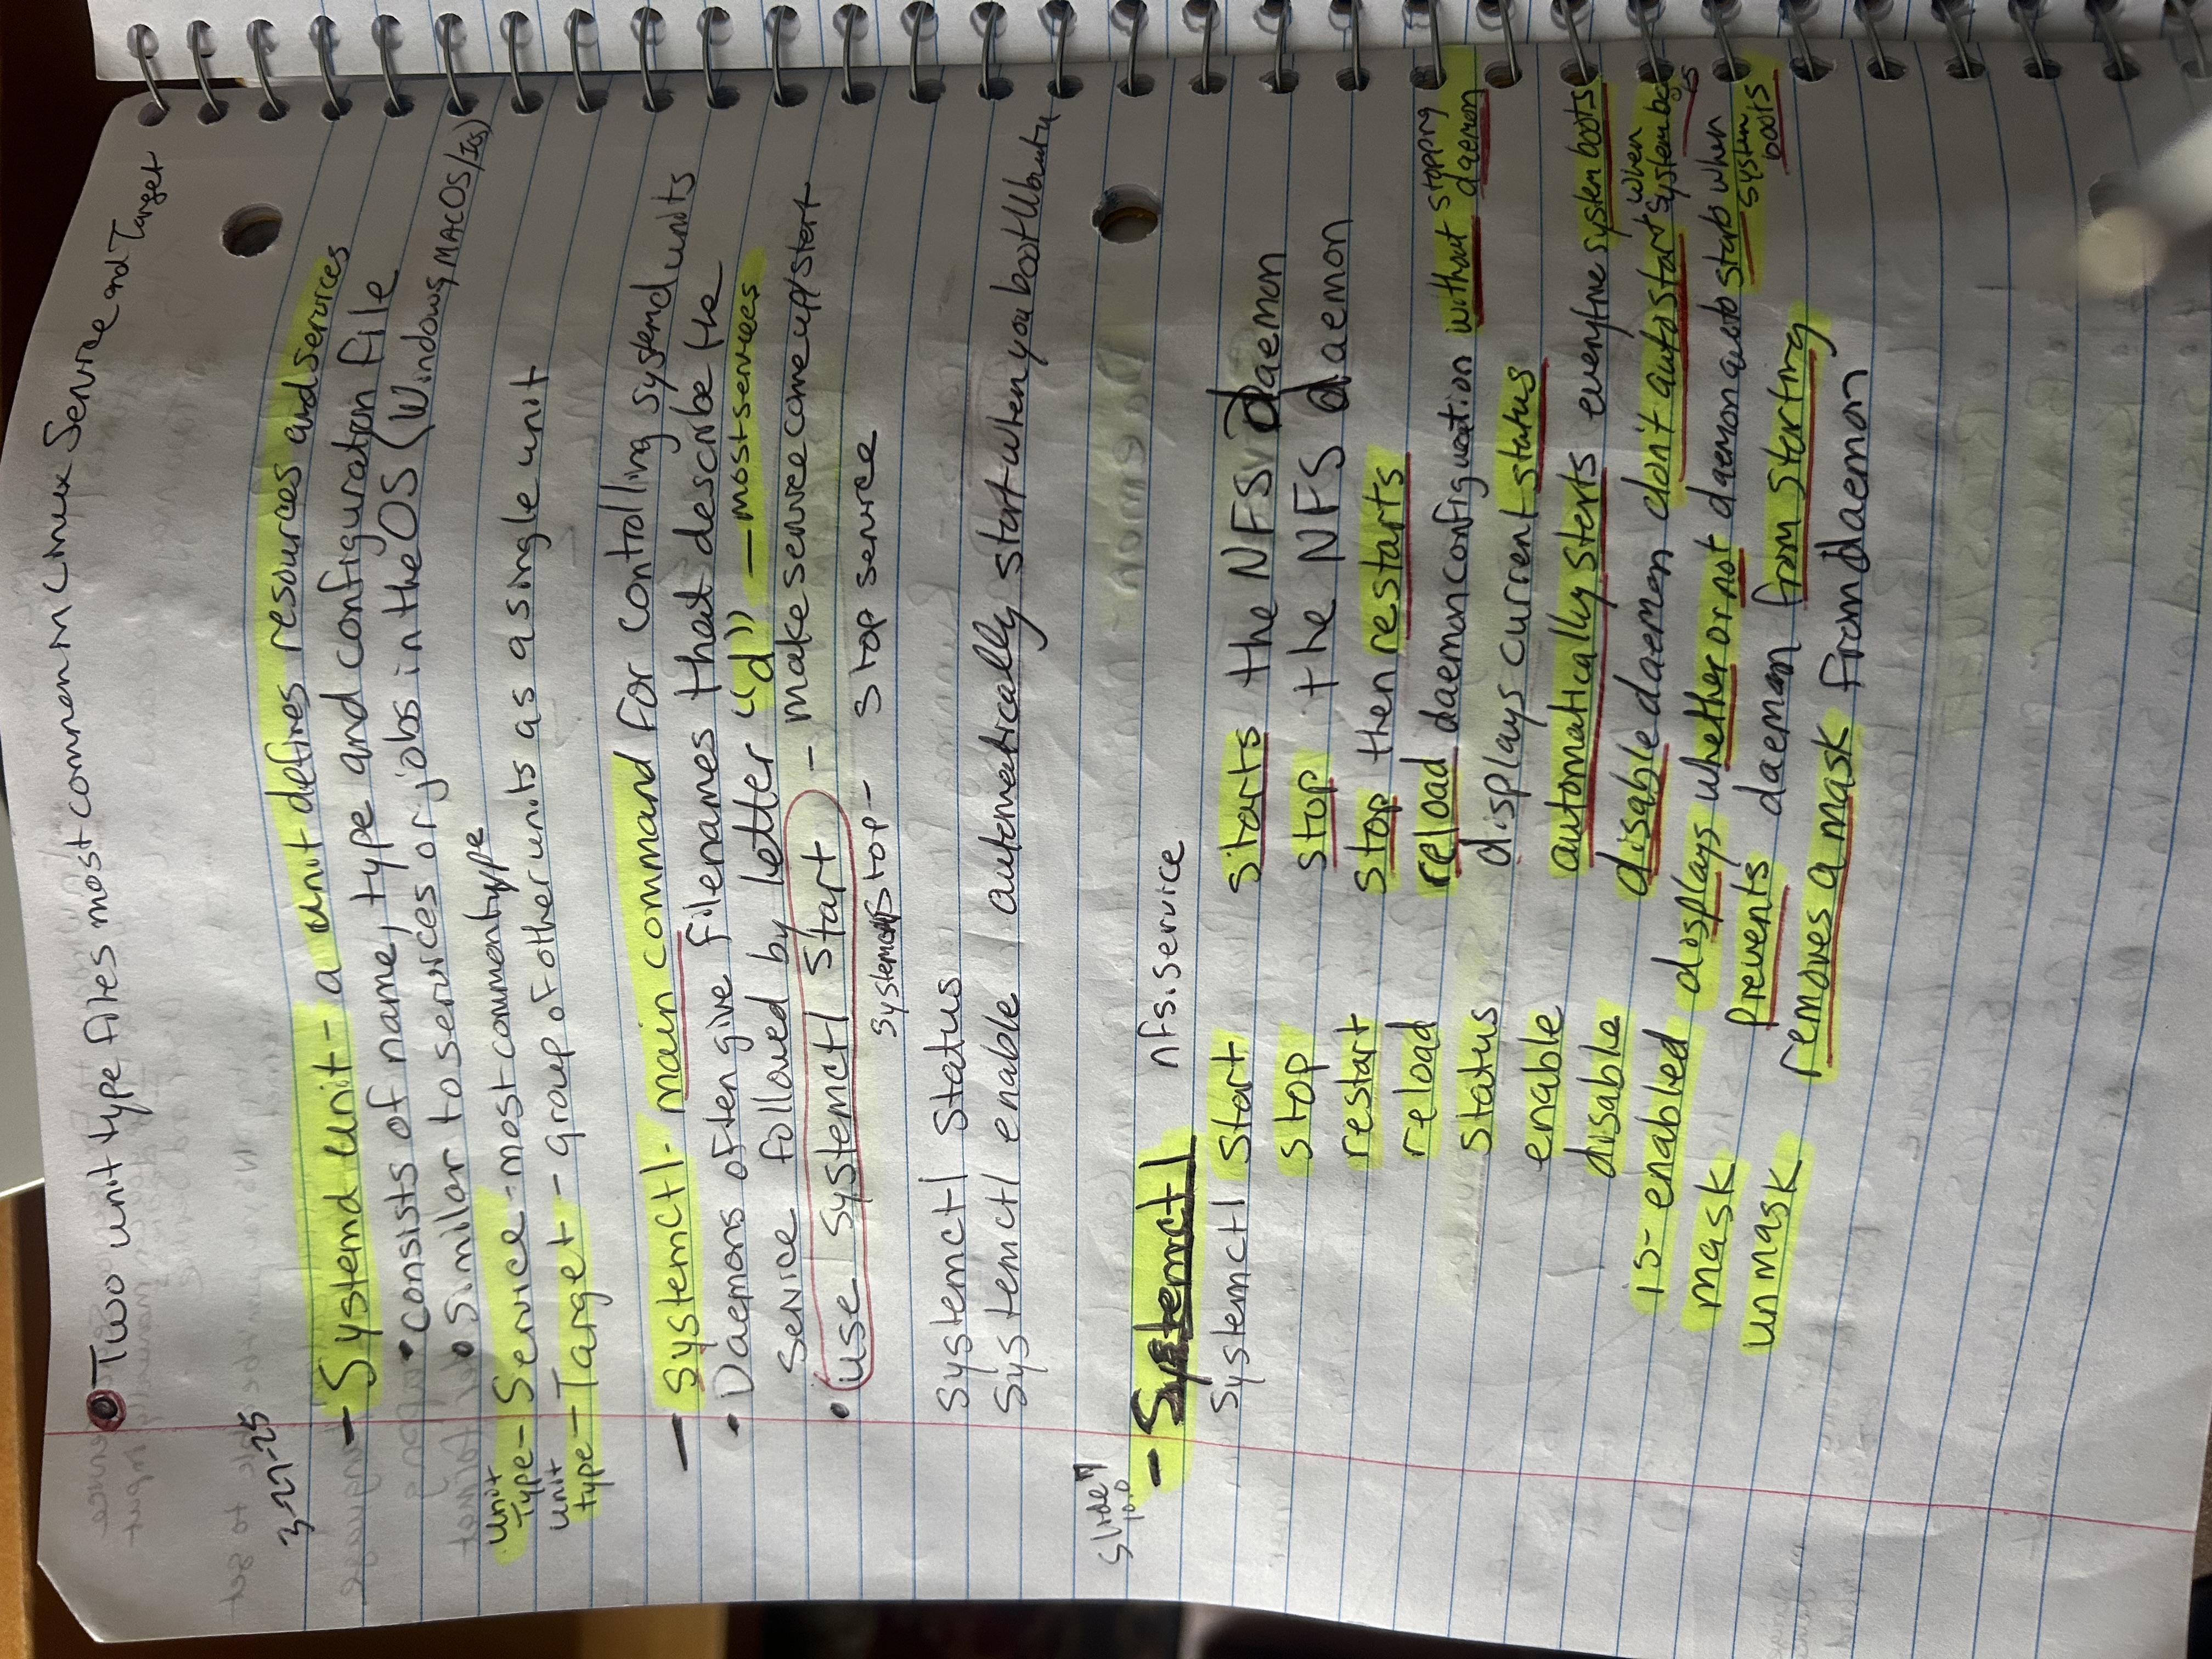 Two unit type files most common in Linux Service and Target
3-27-25
- Systemd Unit - a unit defines resources and services
• consists of name, type and configuration file
• Similar to services or jobs in the OS (Windows, MACOS/Ios)
Unit Type - Service - most common type
Unit type - Target - group of other units as a single unit
- Systemctl - main command for controlling systemd units
• Daemons often give filenames that describe the
service followed by letter "d" — most services
• use systemctl Start - make service come up/start
systemctl Stop - Stop service
Systemctl Status
Systemctl enable | automatically start when you boot Ubuntu
Slide 7
10.0
- Systemctl nfs.service
Systemctl Start starts the NFS daemon
stop stop the NFS daemon
restart stop then restarts
reload reload daemon configuation without stopping daemon
status displays current status
enable automatically sterts everytime system boots
disable disable daemon don't autostart when system boots
is-enabled displays whether or not daemon auto starts when system boots
mask prevents daemon from starting
unmask removes a mask from daemon